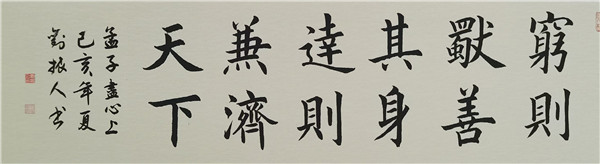 窮則
獸善
其身
達則
兼濟
天下
孟子盡心上
己亥年夏
劉振人书